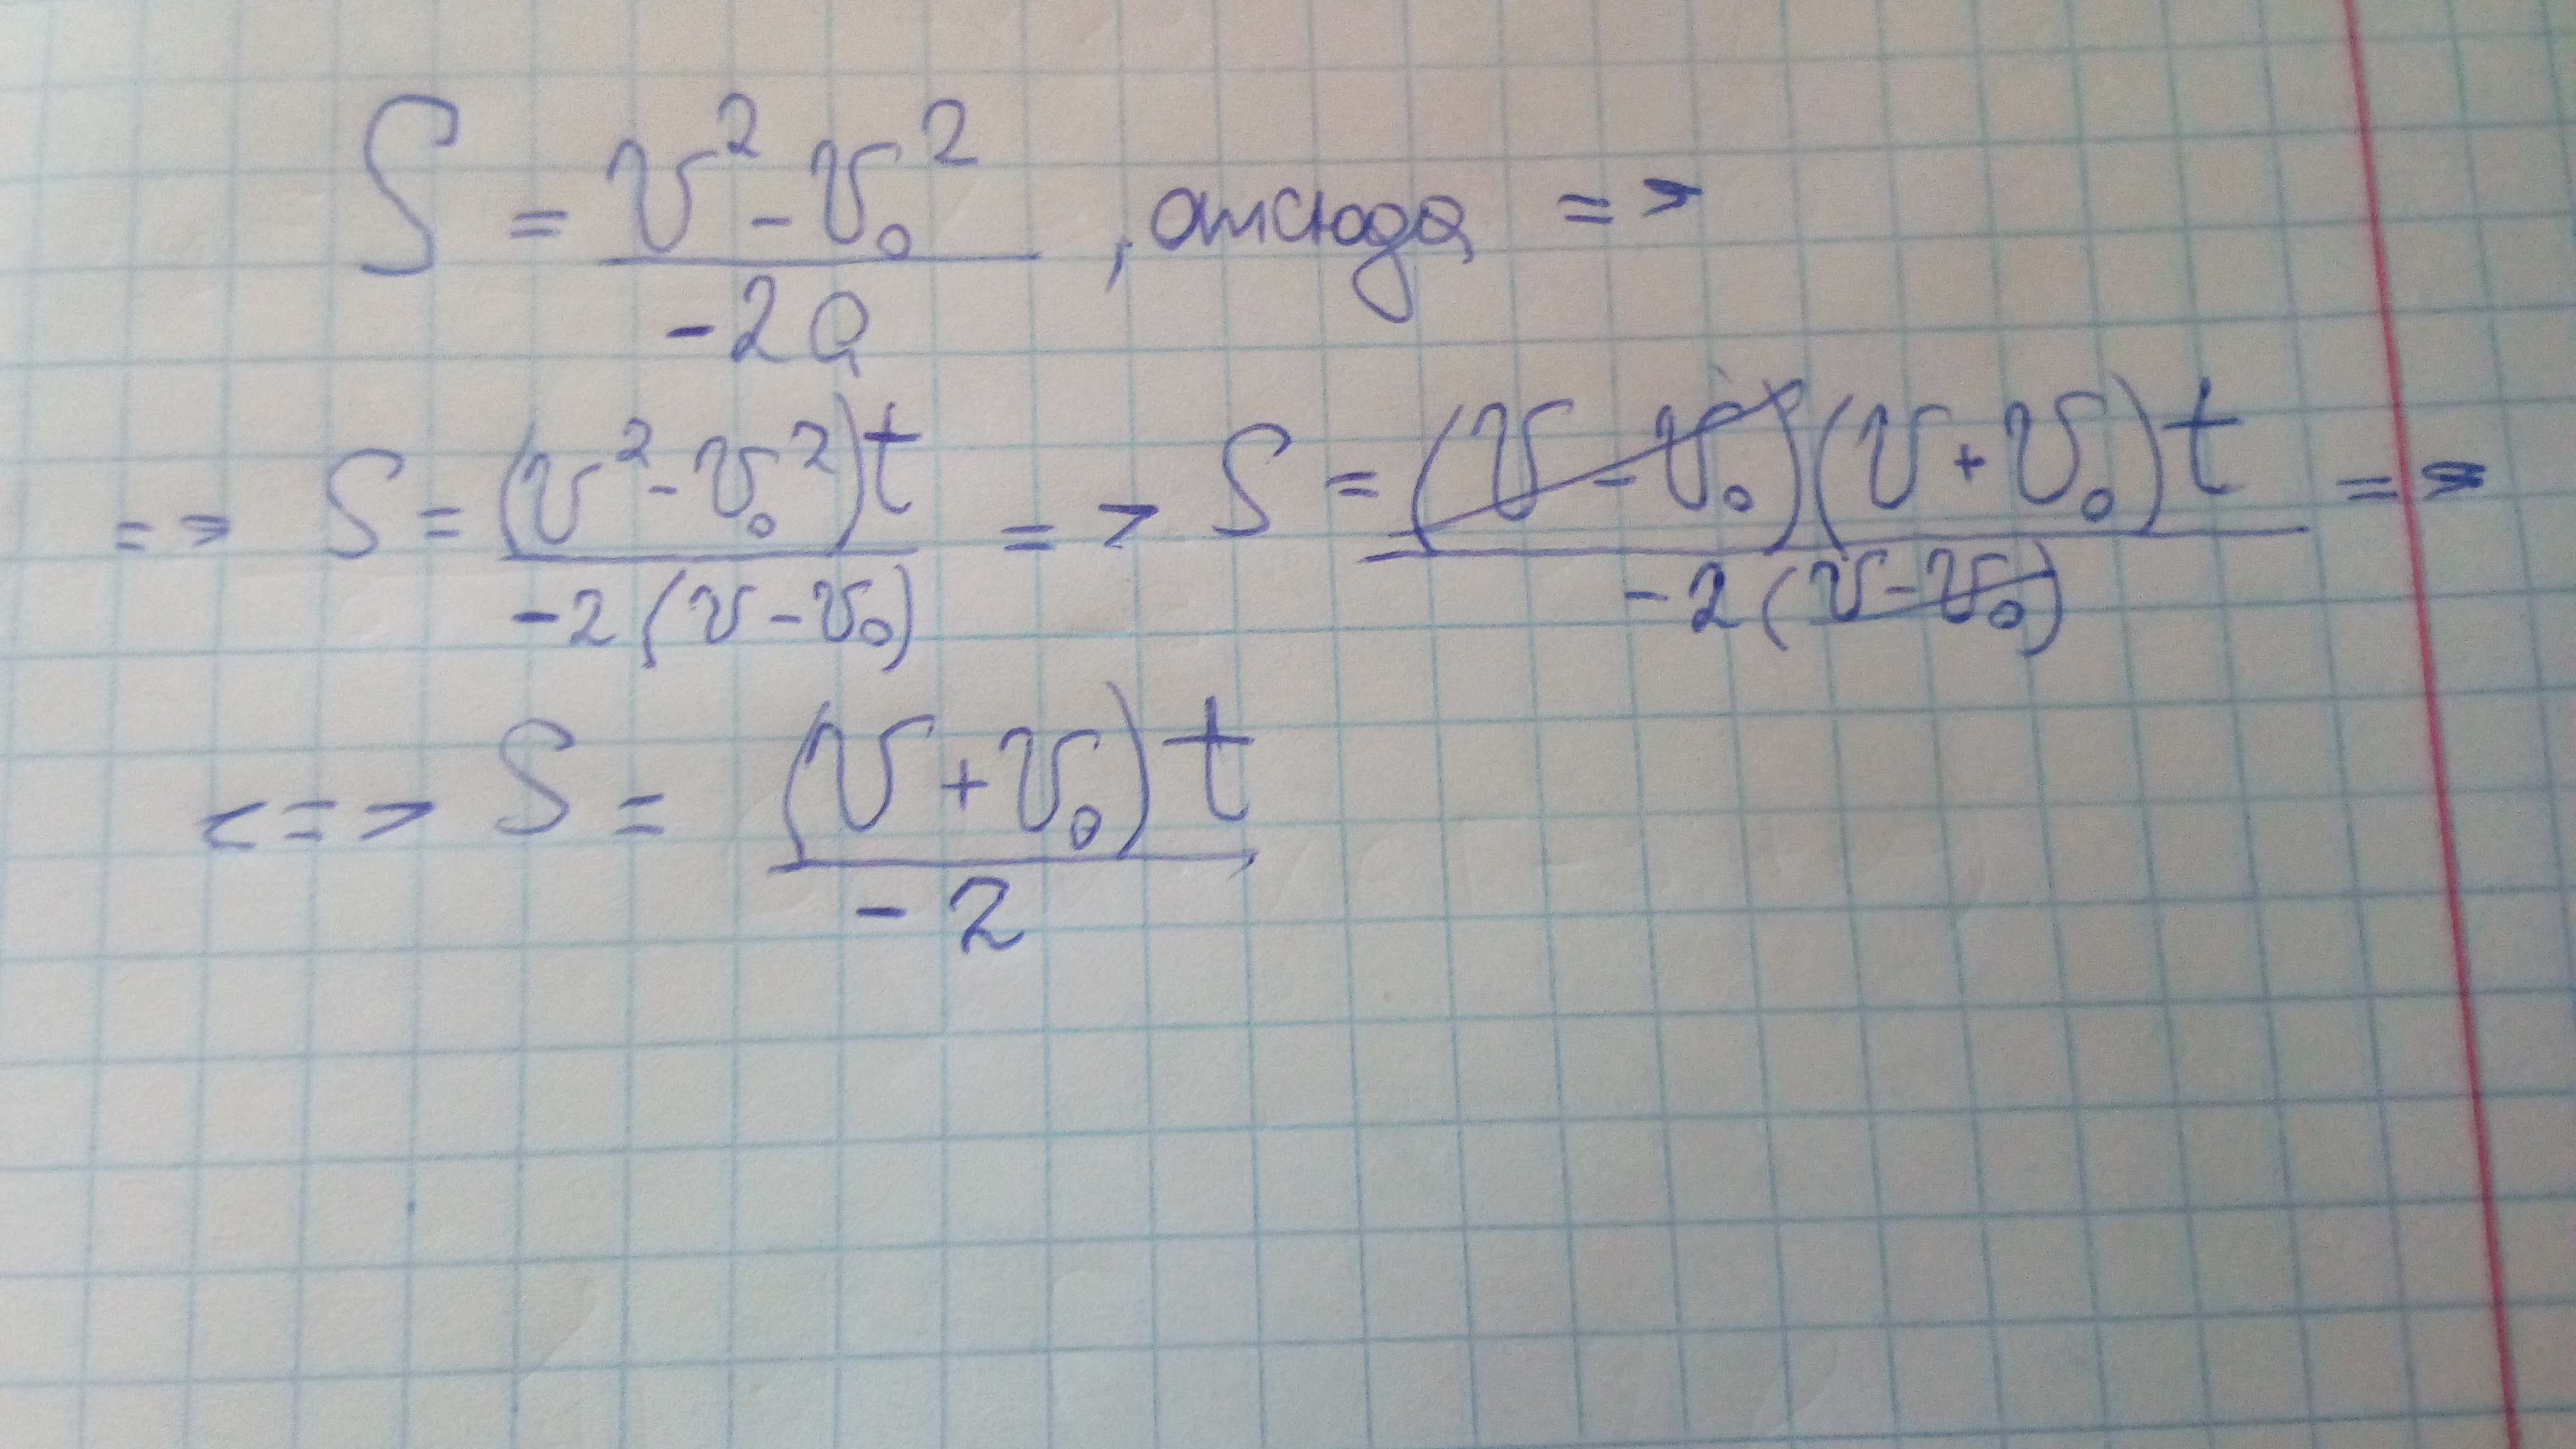 S = (v² - v₀²) / (-2a), отсюда =>
=> S = (v² - v₀²)t / (-2(v - v₀)) => S = (v - v₀)(v + v₀)t / (-2(v - v₀)) =>
<=> S = (v + v₀)t / (-2)